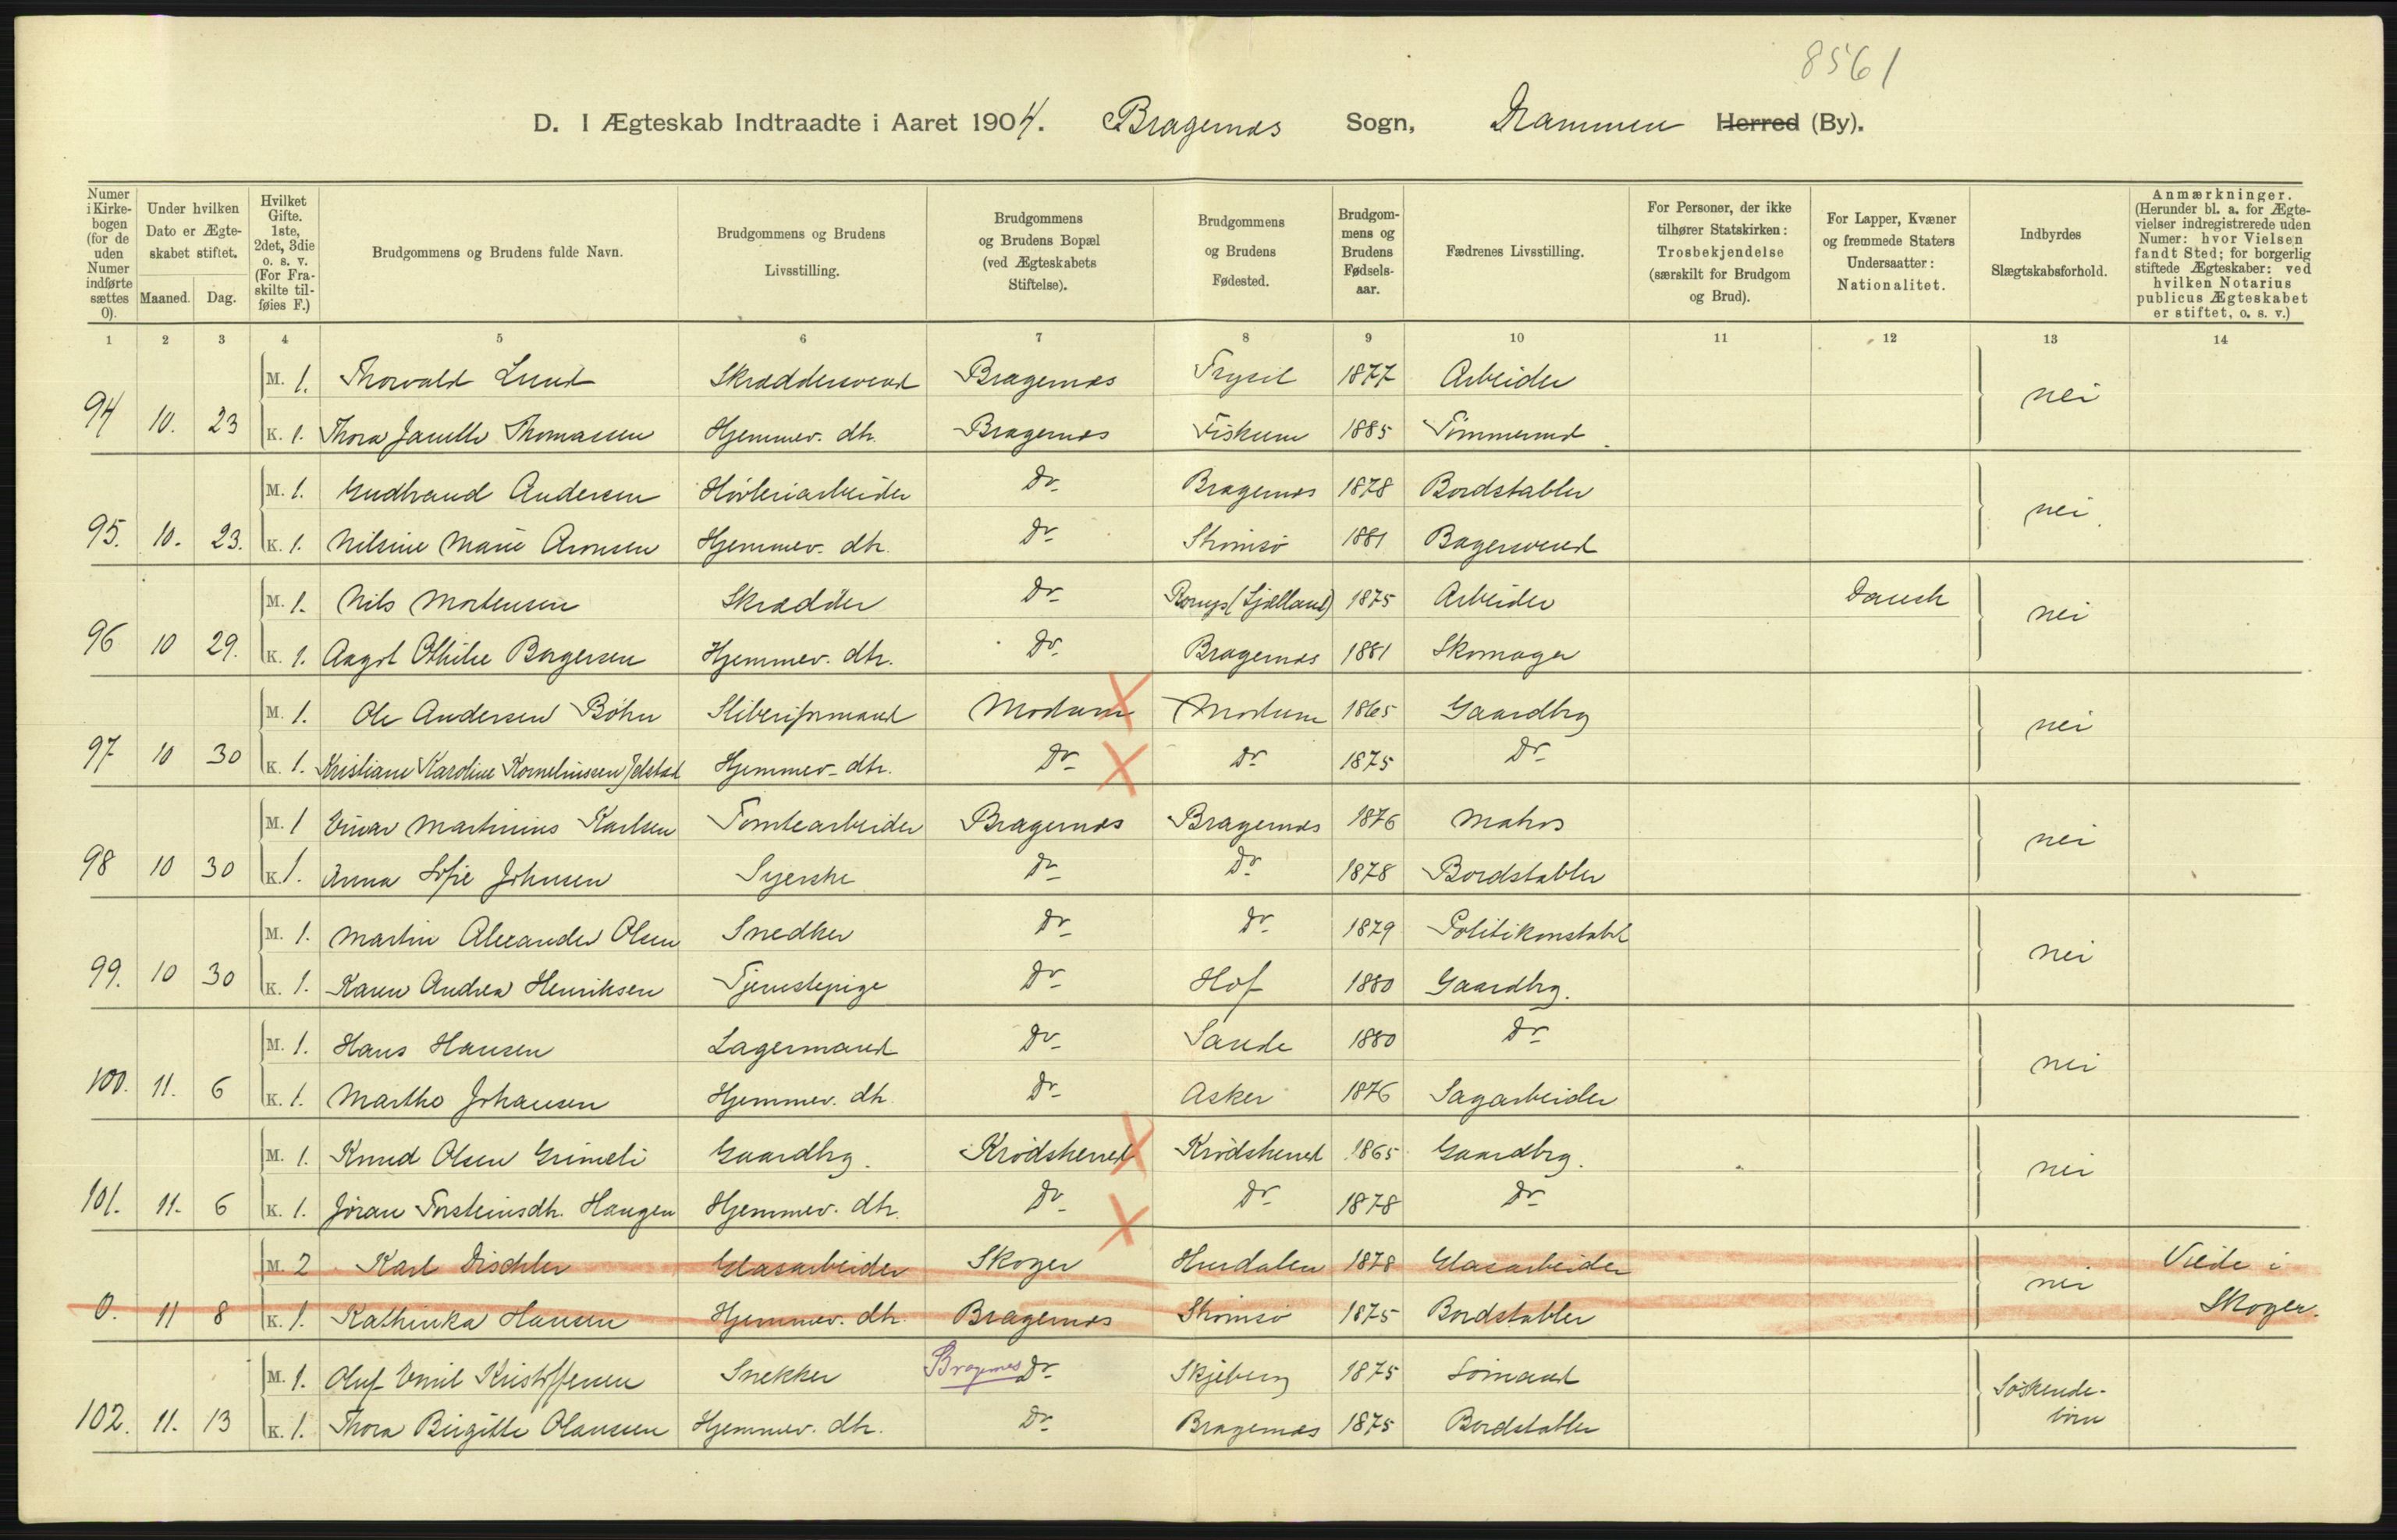 8561
D. I Ægteskab Indtraadte i Aaret 1904. Bragernes Sogn, Drammen Herred (By).
Numer i Kirkebogen (for de uden Numer indførte sættes 0).
Under hvilken Dato er Ægteskabet stiftet. Maaned. Dag.
Hvilket Gifte. 1ste, 2det, 3die o. s. v. (For Fraskilte tilføies F.)
Brudgommens og Brudens fulde Navn.
Brudgommens og Brudens Livsstilling.
Brudgommens og Brudens Bopæl (ved Ægteskabets Stiftelse).
Brudgommens og Brudens Fødested.
Brudgommens og Brudens Fødselsaar.
Fædrenes Livsstilling.
For Personer, der ikke tilhører Statskirken: Trosbekjendelse (særskilt for Brudgom og Brud).
For Lapper, Kvæner og fremmede Staters Undersaatter: Nationalitet.
Indbyrdes Slægtskabsforhold.
Anmærkninger. (Herunder bl. a. for Ægtevielser indregistrerede uden Numer: hvor Vielsen fandt Sted; for borgerlig stiftede Ægteskaber: ved hvilken Notarius publicus Ægteskabet er stiftet, o. s. v.)
1 2 3 4 5 6 7 8 9 10 11 12 13 14
M. 1. Thorvald Lund Skræddersvend Bragernes Trysil 1877 Arbeider nei
94 10. 23 K. 1. Thora Janette Thomassen Hjemmev. dtr. Bragernes Fiskum 1885 Tømmermd.
M. 1. Gudbrand Andersen Høvleriarbeider Do Bragernes 1878 Bordstabler nei
95. 10. 23. K. 1. Nilsine Marie Aronsen Hjemmev. dtr. Do Strømsø 1881 Bagersvend
M. 1. Nils Mortensen Skrædder Do (Sjælland) 1875 Arbeider Dansk nei
96 10 29. K. 1. Aagot Othilie Borgersen Hjemmev. dtr. Do Bragernes 1881 Skomager
M. 1. Ole Andersen Bøhn Sliberiformand Modum Modum 1865 Gaardbrg nei
97 10 30 K. 1. Kristiane Karoline Korneliussen Hjemmev. dtr. Do Do 1875 Do
M. 1 Einar Martinius Karlsen Tomtearbeider Bragernes Bragernes 1876 Matros nei
98 10 30 K. 1. Anna Sofie Johnsen Syerske Do Do 1878 Bordstabler
M. 1. Martin Alexander Olsen Snedker Do Do 1879 Politikonstabel nei
99. 10 30 K. 1. Karen Andrea Henriksen Tjenestepige Do Hof 1880 Gaardbrg.
M. 1. Hans Hansen Lagermand Do Sande 1880 Do nei
100. 11. 6 K. 1. Marthe Johansen Hjemmev. dtr. Do Asker 1876 Sagarbeider
M. 1. Knud Olsen Grimeli Gaardbrg. Krødsherred Krødsherred 1865 Gaardbrg. nei
101. 11. 6 K. 1. Jøran Torsteinsdtr. Haugen Hjemmev. dtr. Do Do 1878 Do
M. 2 Karl Dischler Glasarbeider Skoger Hurdalen 1878 Glasarbeider nei Viede i
0. 11 8 K. 1. Kathinka Hansen Hjemmev. dtr. Bragernes Strømsø 1875 Bordstabler Skoger.
M. 1. Oluf Emil Kristoffersen Snekker Bragernes Do Skjeberg 1875 Sømand Søskende-
102. 11. 13 K. 1. Thora Birgitte Olaussen Hjemmev. dtr. Do Bragernes 1875 Bordstabler børn